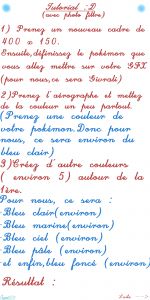 Tutorial :D
(avec photo filtre)
1) Prenez un nouveau cadre de
400 x 150.
Ensuite,définissez le pokémon que
vous allez mettre sur votre GFX
(pour nous,ce sera Givrali)
2)Prenez l'aérographe et mettez
de la couleur un peu partout.
(Prenez une couleur de
votre pokémon.Donc pour
nous, ce sera environ du
bleu clair)
3)Créez d'autre couleurs
( environ 5) autour de la
1ère.
Pour nous, ce sera :
-Bleu clair(environ)
-Bleu marine(environ)
-Bleu ciel (environ)
-Bleu pâle (environ)
-et enfin,bleu foncé (environ)
Résultat :